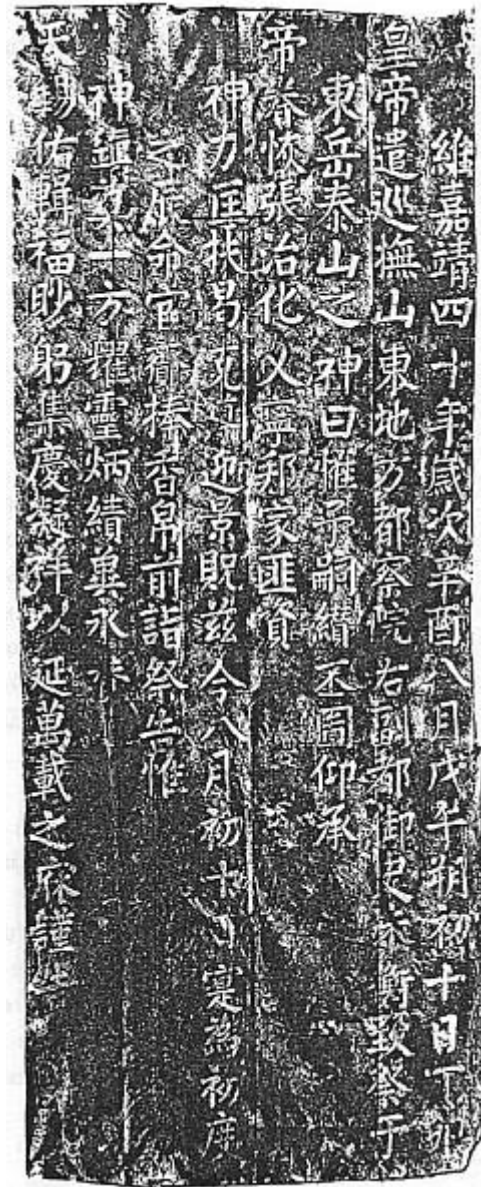 維嘉靖四十年歲次辛酉八月戊午朔初十日丁卯
皇帝遣巡撫山東地方都察院右副都御史朱衡致祭于
東岳泰山之神曰惟予嗣纘丕圖仰承
帝眷恢張治化乂寧邦家匪資
神力匡扶曷克迎景貺茲今八月初十日寔為初度
之辰命官齎捧香帛前詣祭告惟
神鎮一方擢靈炳績冀永
天錫佑輯福眇躬集慶凝祥以延萬載之謹